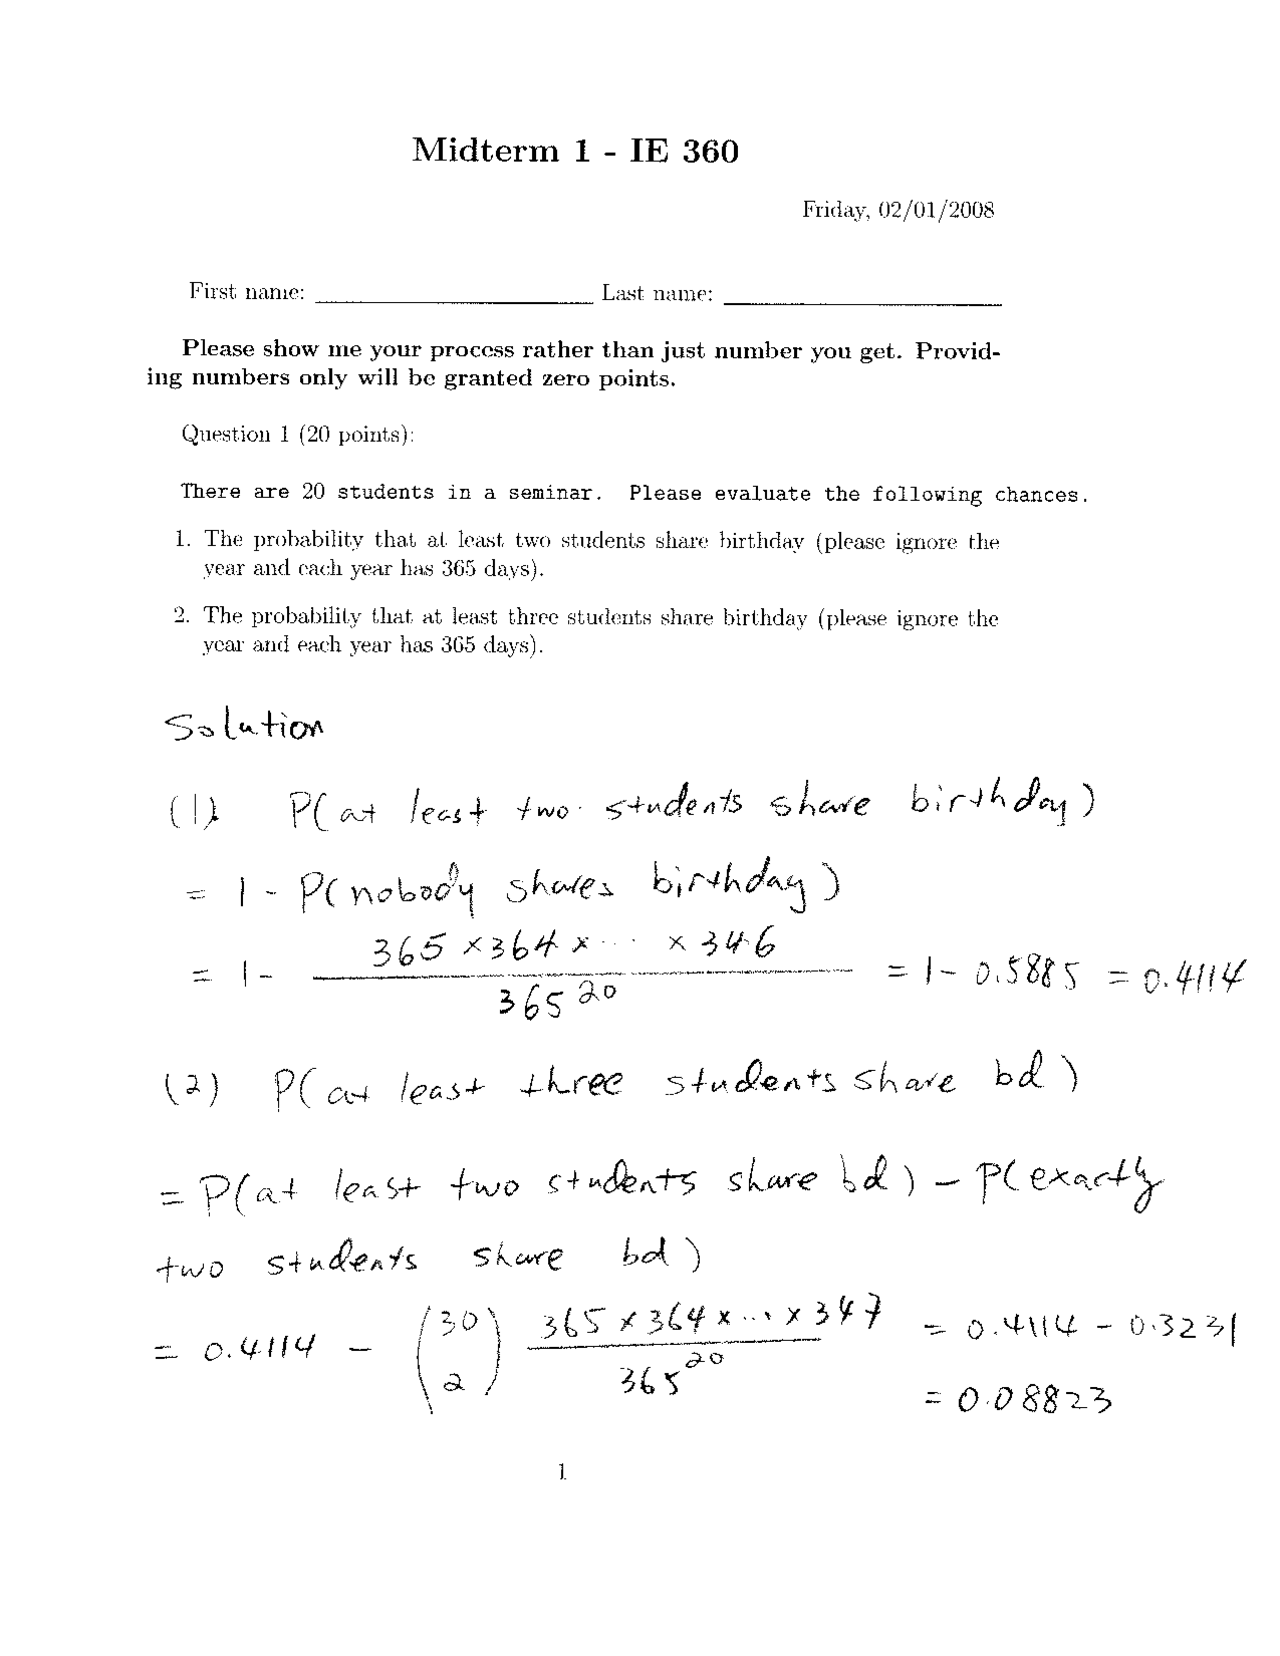 Midterm 1 - IE 360
Friday, 02/01/2008
First name: Last name:
Please show me your process rather than just number you get. Provid-
ing numbers only will be granted zero points.
Question 1 (20 points):
There are 20 students in a seminar. Please evaluate the following chances.
1. The probability that at least two students share birthday (please ignore the
year and each year has 365 days).
2. The probability that at least three students share birthday (please ignore the
year and each year has 365 days).
Solution
(1) P(at least two students share birthday)
= 1 - P(nobody shares birthday)
= 1 - \frac{365 × 364 × ··· × 346}{365^{20}} = 1 - 0.5885 = 0.4114
(2) P(at least three students share bd)
= P(at least two students share bd) - P(exactly
two students share bd)
= 0.4114 - \binom{30}{2} \frac{365 × 364 × ··· × 347}{365^{20}} = 0.4114 - 0.3231
= 0.08823
1